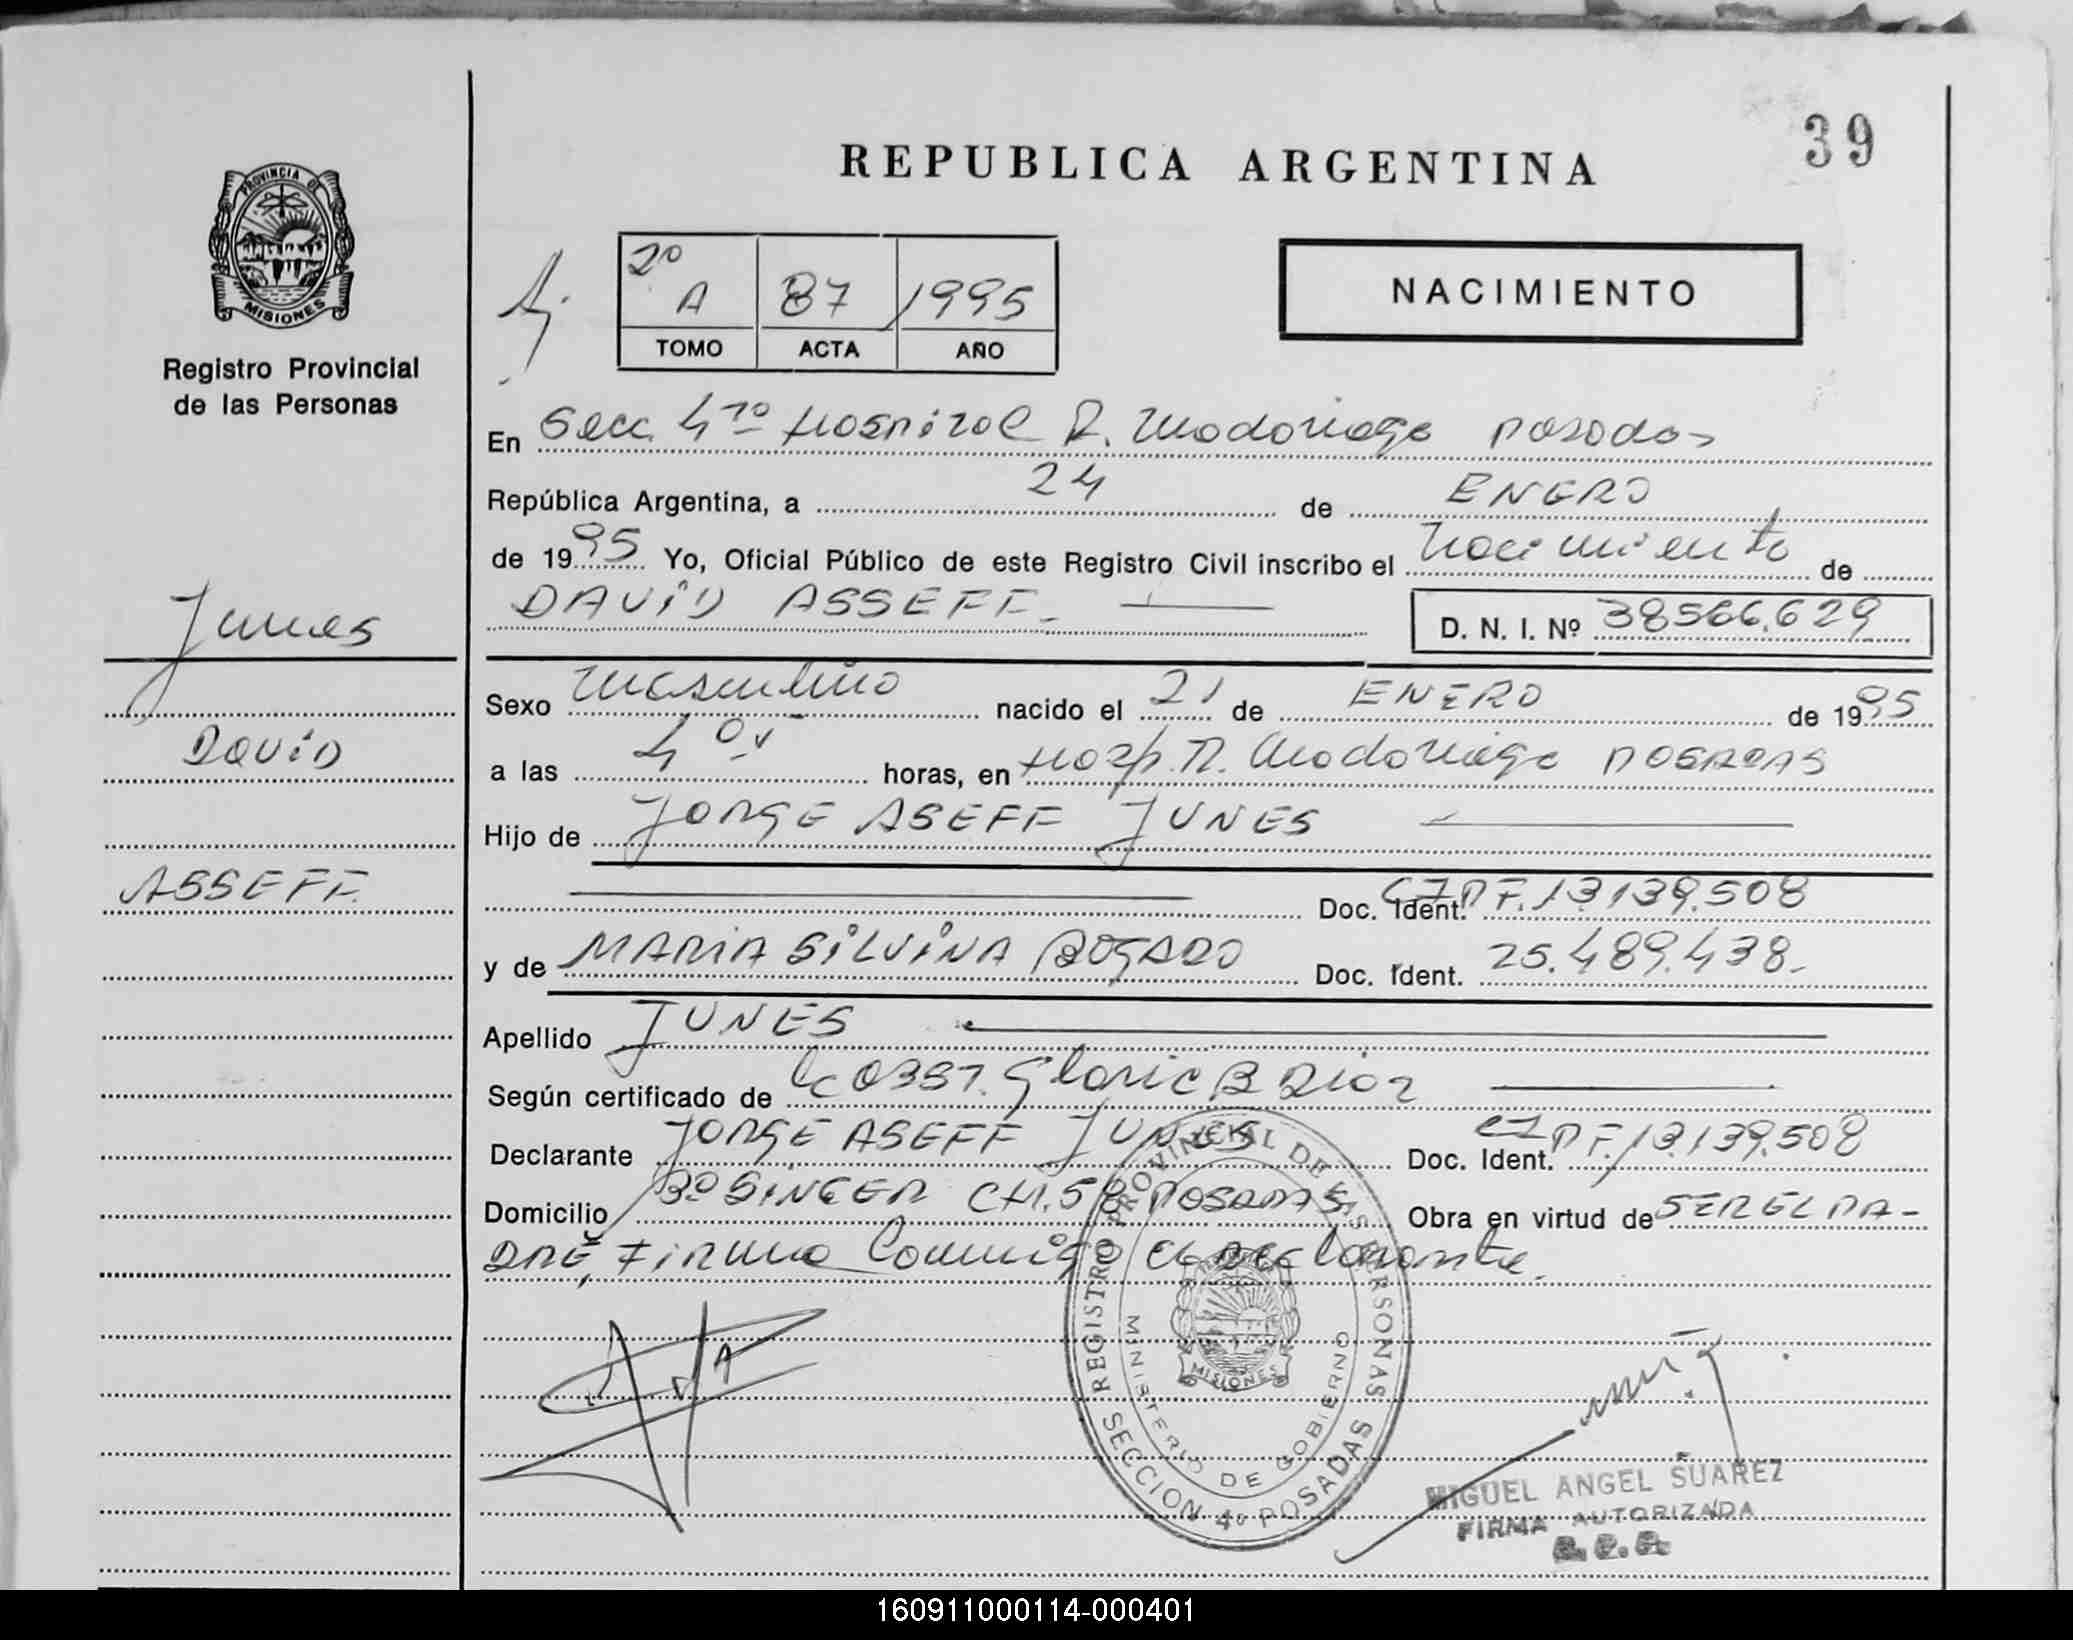 REPUBLICA ARGENTINA
39
PROVINCIA DE
MISIONES
Registro Provincial
de las Personas
2º
A 87 1995
TOMO ACTA AÑO
NACIMIENTO
En Secc. 4ta Hospital R. Madariaga Posadas
República Argentina, a 24 de ENERO
de 1995 Yo, Oficial Público de este Registro Civil inscribo el nacimiento de
DAVID ASSEFF.-
D. N. I. Nº 38566.629
Junes
David
ASSEFF.
Sexo masculino nacido el 21 de ENERO de 1995
a las 4 horas, en Hosp. R. Madariaga POSADAS
Hijo de JORGE ASEFF JUNES
Doc. Ident. CIPF. 13.139.508
y de MARIA SILVINA BOGADO Doc. Ident. 25.489.438.-
Apellido JUNES
Según certificado de Gloria B Diaz
Declarante JORGE ASEFF JUNES Doc. Ident. CIPF. 13.139.508
Domicilio Bº SINGER CH. 58 POSADAS Obra en virtud de SER EL PA-
DRE, Firma Conmigo el Declarante.
REGISTRO PROVINCIAL DE LAS PERSONAS
MINISTERIO DE GOBIERNO
MISIONES
SECCION 4º POSADAS
MIGUEL ANGEL SUAREZ
FIRMA AUTORIZADA
160911000114-000401